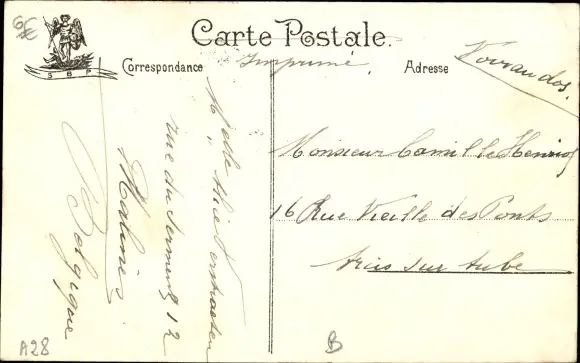 6€
Carte Postale.
S B P
Correspondance
Imprimé.
Adresse
Voir au dos.
Melle Verstraeten
rue du Serment 12
Malines
Belgique
Monsieur Camille Henriot
16 Rue Vieille des Ponts
Arcis sur Aube
A28
B